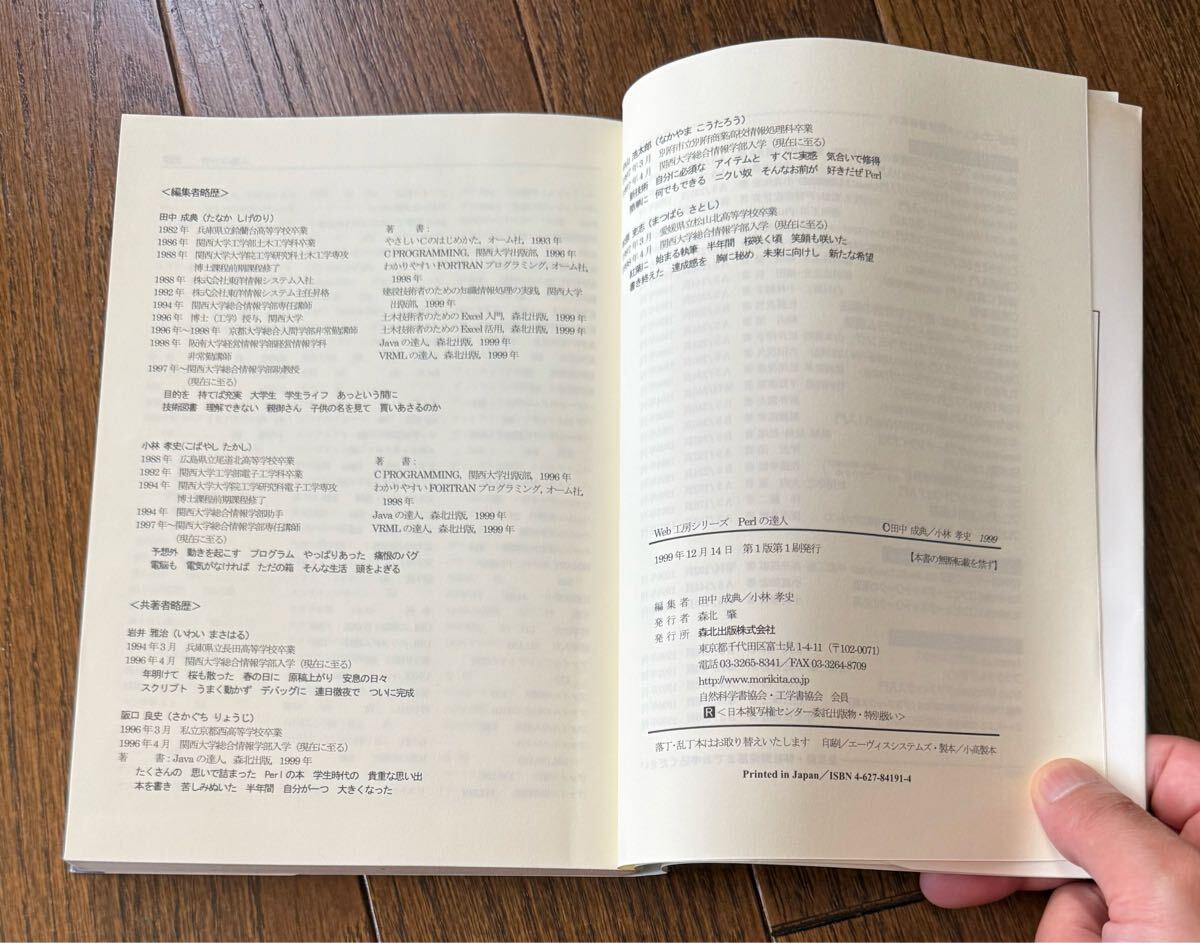 <編集者略歴>
田中 成典(たなか しげのり)
1982年 兵庫県立鈴蘭台高等学校卒業
1986年 関西大学工学部土木工学科卒業
1988年 関西大学大学院工学研究科土木工学専攻
博士課程前期課程修了
1988年 株式会社東洋情報システム入社
1992年 株式会社東洋情報システム主任昇格
1994年 関西大学総合情報学部専任講師
1996年 博士(工学)授与,関西大学
1996年〜1998年 京都大学総合人間学部非常勤講師
1998年 阪南大学経営情報学部経営情報学科
非常勤講師
1997年〜関西大学総合情報学部助教授
(現在に至る)
著 書:
やさしいCのはじめかた,オーム社,1993年
C PROGRAMMING,関西大学出版部,1996年
わかりやすいFORTRANプログラミング,オーム社,
1998年
建設技術者のための知識情報処理の実践,関西大学
出版部,1999年
土木技術者のためのExcel入門,森北出版,1999年
土木技術者のためのExcel活用,森北出版,1999年
Javaの達人,森北出版,1999年
VRMLの達人,森北出版,1999年
目的を 持てば充実 大学生 学生ライフ あっという間に
技術図書 理解できない 親御さん 子供の名を見て 買いあさるのか
小林 孝史(こばやし たかし)
1988年 広島県立尾道北高等学校卒業
1992年 関西大学工学部電子工学科卒業
1994年 関西大学大学院工学研究科電子工学専攻
博士課程前期課程修了
1994年 関西大学総合情報学部助手
1997年〜関西大学総合情報学部専任講師
(現在に至る)
著 書:
C PROGRAMMING,関西大学出版部,1996年
わかりやすいFORTRANプログラミング,オーム社,
1998年
Javaの達人,森北出版,1999年
VRMLの達人,森北出版,1999年
予想外 動きを起こす プログラム やっぱりあった 痛恨のバグ
電脳も 電気がなければ ただの箱 そんな生活 頭をよぎる
<共著者略歴>
岩井 雅治(いわい まさはる)
1994年3月 兵庫県立長田高等学校卒業
1996年4月 関西大学総合情報学部入学(現在に至る)
年明けて 桜も散った 春の日に 原稿上がり 安息の日々
スクリプト うまく動かず デバッグに 連日徹夜で ついに完成
阪口 良史(さかぐち りょうじ)
1996年3月 私立京都西高等学校卒業
1996年4月 関西大学総合情報学部入学(現在に至る)
著 書:Javaの達人,森北出版,1999年
たくさんの 思いで詰まった Perlの本 学生時代の 貴重な思い出
本を書き 苦しみぬいた 半年間 自分が一つ 大きくなった
山 浩太郎(なかやま こうたろう)
年3月 別府市立別府商業高校情報処理科卒業
年4月 関西大学総合情報学部入学(現在に至る)
新技術 自分に必須な アイテムと すぐに実感 気合いで修得
簡単に 何でもできる ニクい奴 そんなお前が 好きだぜPerl
(まつばら さとし)
年3月 愛媛県立松山北高等学校卒業
年4月 関西大学総合情報学部入学(現在に至る)
紅葉に 始まる執筆 半年間 桜咲く頃 笑顔も咲いた
書き終えた 達成感を 胸に秘め 未来に向けし 新たな希望
Web工房シリーズ Perlの達人
©田中 成典/小林 孝史 1999
1999年12月14日 第1版第1刷発行
【本書の無断転載を禁ず】
編集者 田中 成典/小林 孝史
発行者 森北 肇
発行所 森北出版株式会社
東京都千代田区富士見1-4-11(〒102-0071)
電話 03-3265-8341/FAX 03-3264-8709
http://www.morikita.co.jp
自然科学書協会・工学書協会 会員
R<日本複写権センター委託出版物・特別扱い>
落丁・乱丁本はお取り替えいたします 印刷/エーヴィスシステムズ・製本/小高製本
Printed in Japan/ISBN 4-627-84191-4